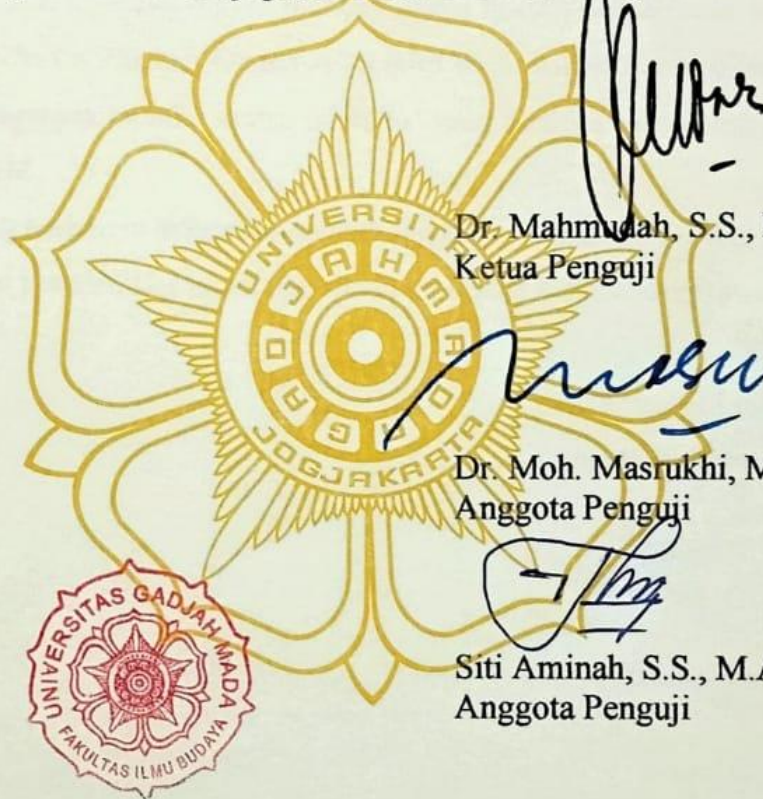 UNIVERSITAS
GADJAH MADA
JOGJAKARTA
Dr. Mahmudah, S.S.,
Ketua Penguji
Dr. Moh. Masrukhi,
Anggota Penguji
Siti Aminah, S.S.,
Anggota Penguji
UNIVERSITAS GADJAH MADA
FAKULTAS ILMU BUDAYA